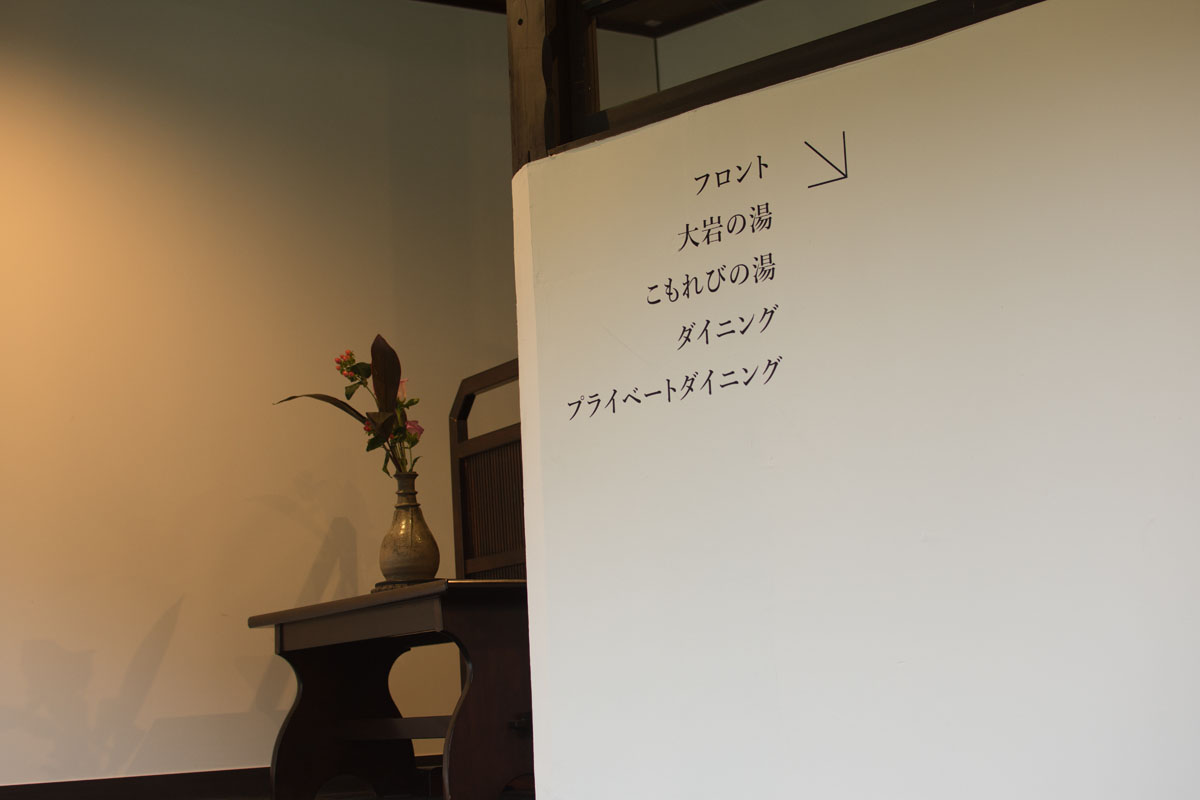 フロント
大岩の湯
こもれびの湯
ダイニング
プライベートダイニング